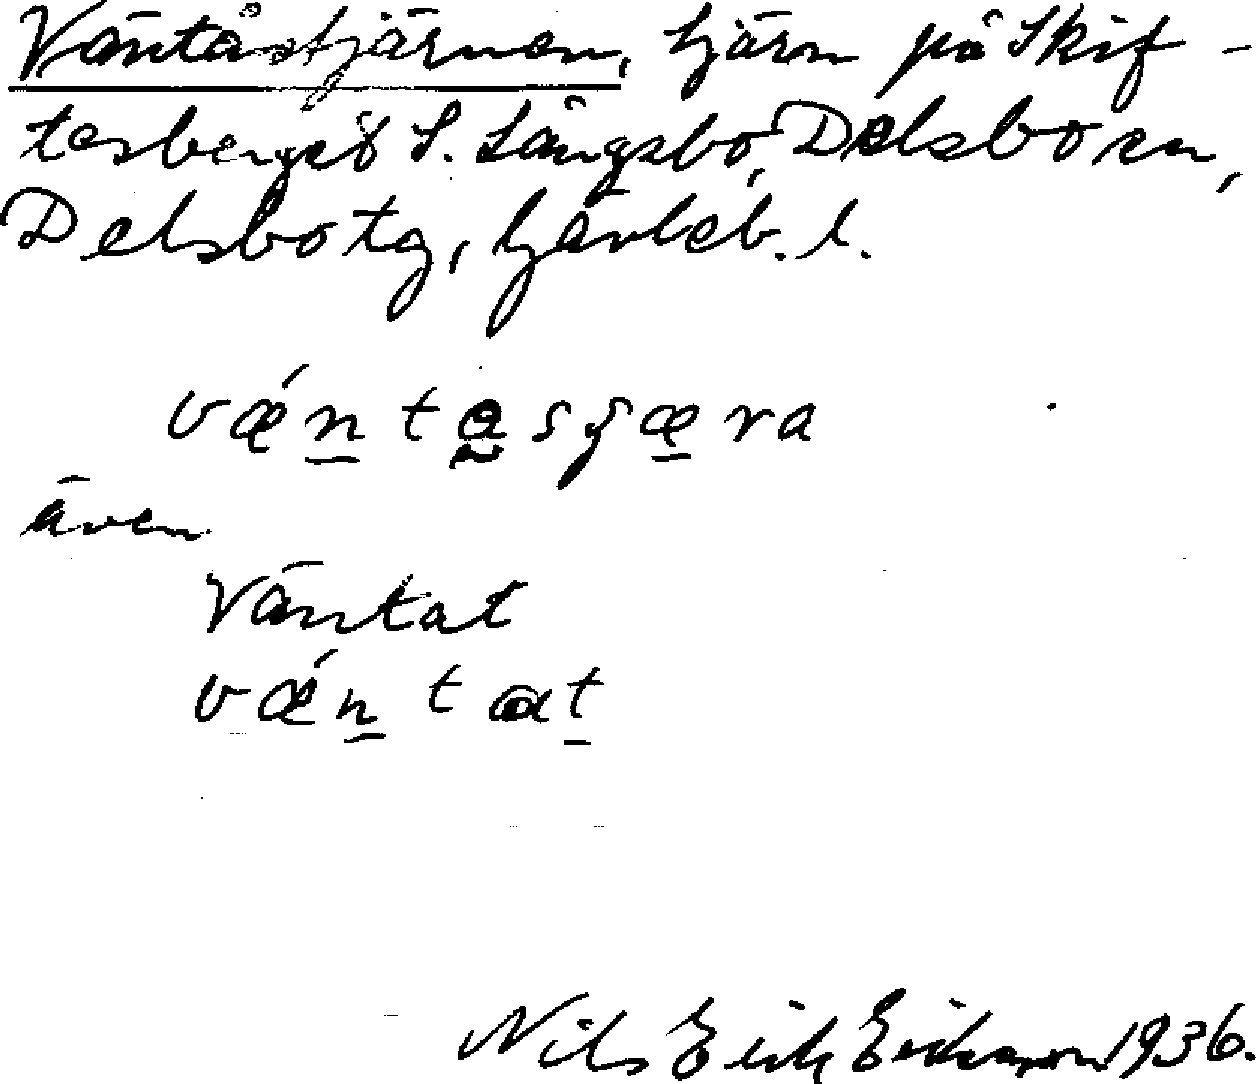 Väntåstjärnen, tjärn på Skif-
tesberget S. Långsbo, Delsbo sn,
Delsbo tg, Gävleb. l.
vǽn t a s ȷ æ r a
även
Väntat
vǽn t at
Nils Erik Eriksson 1936.